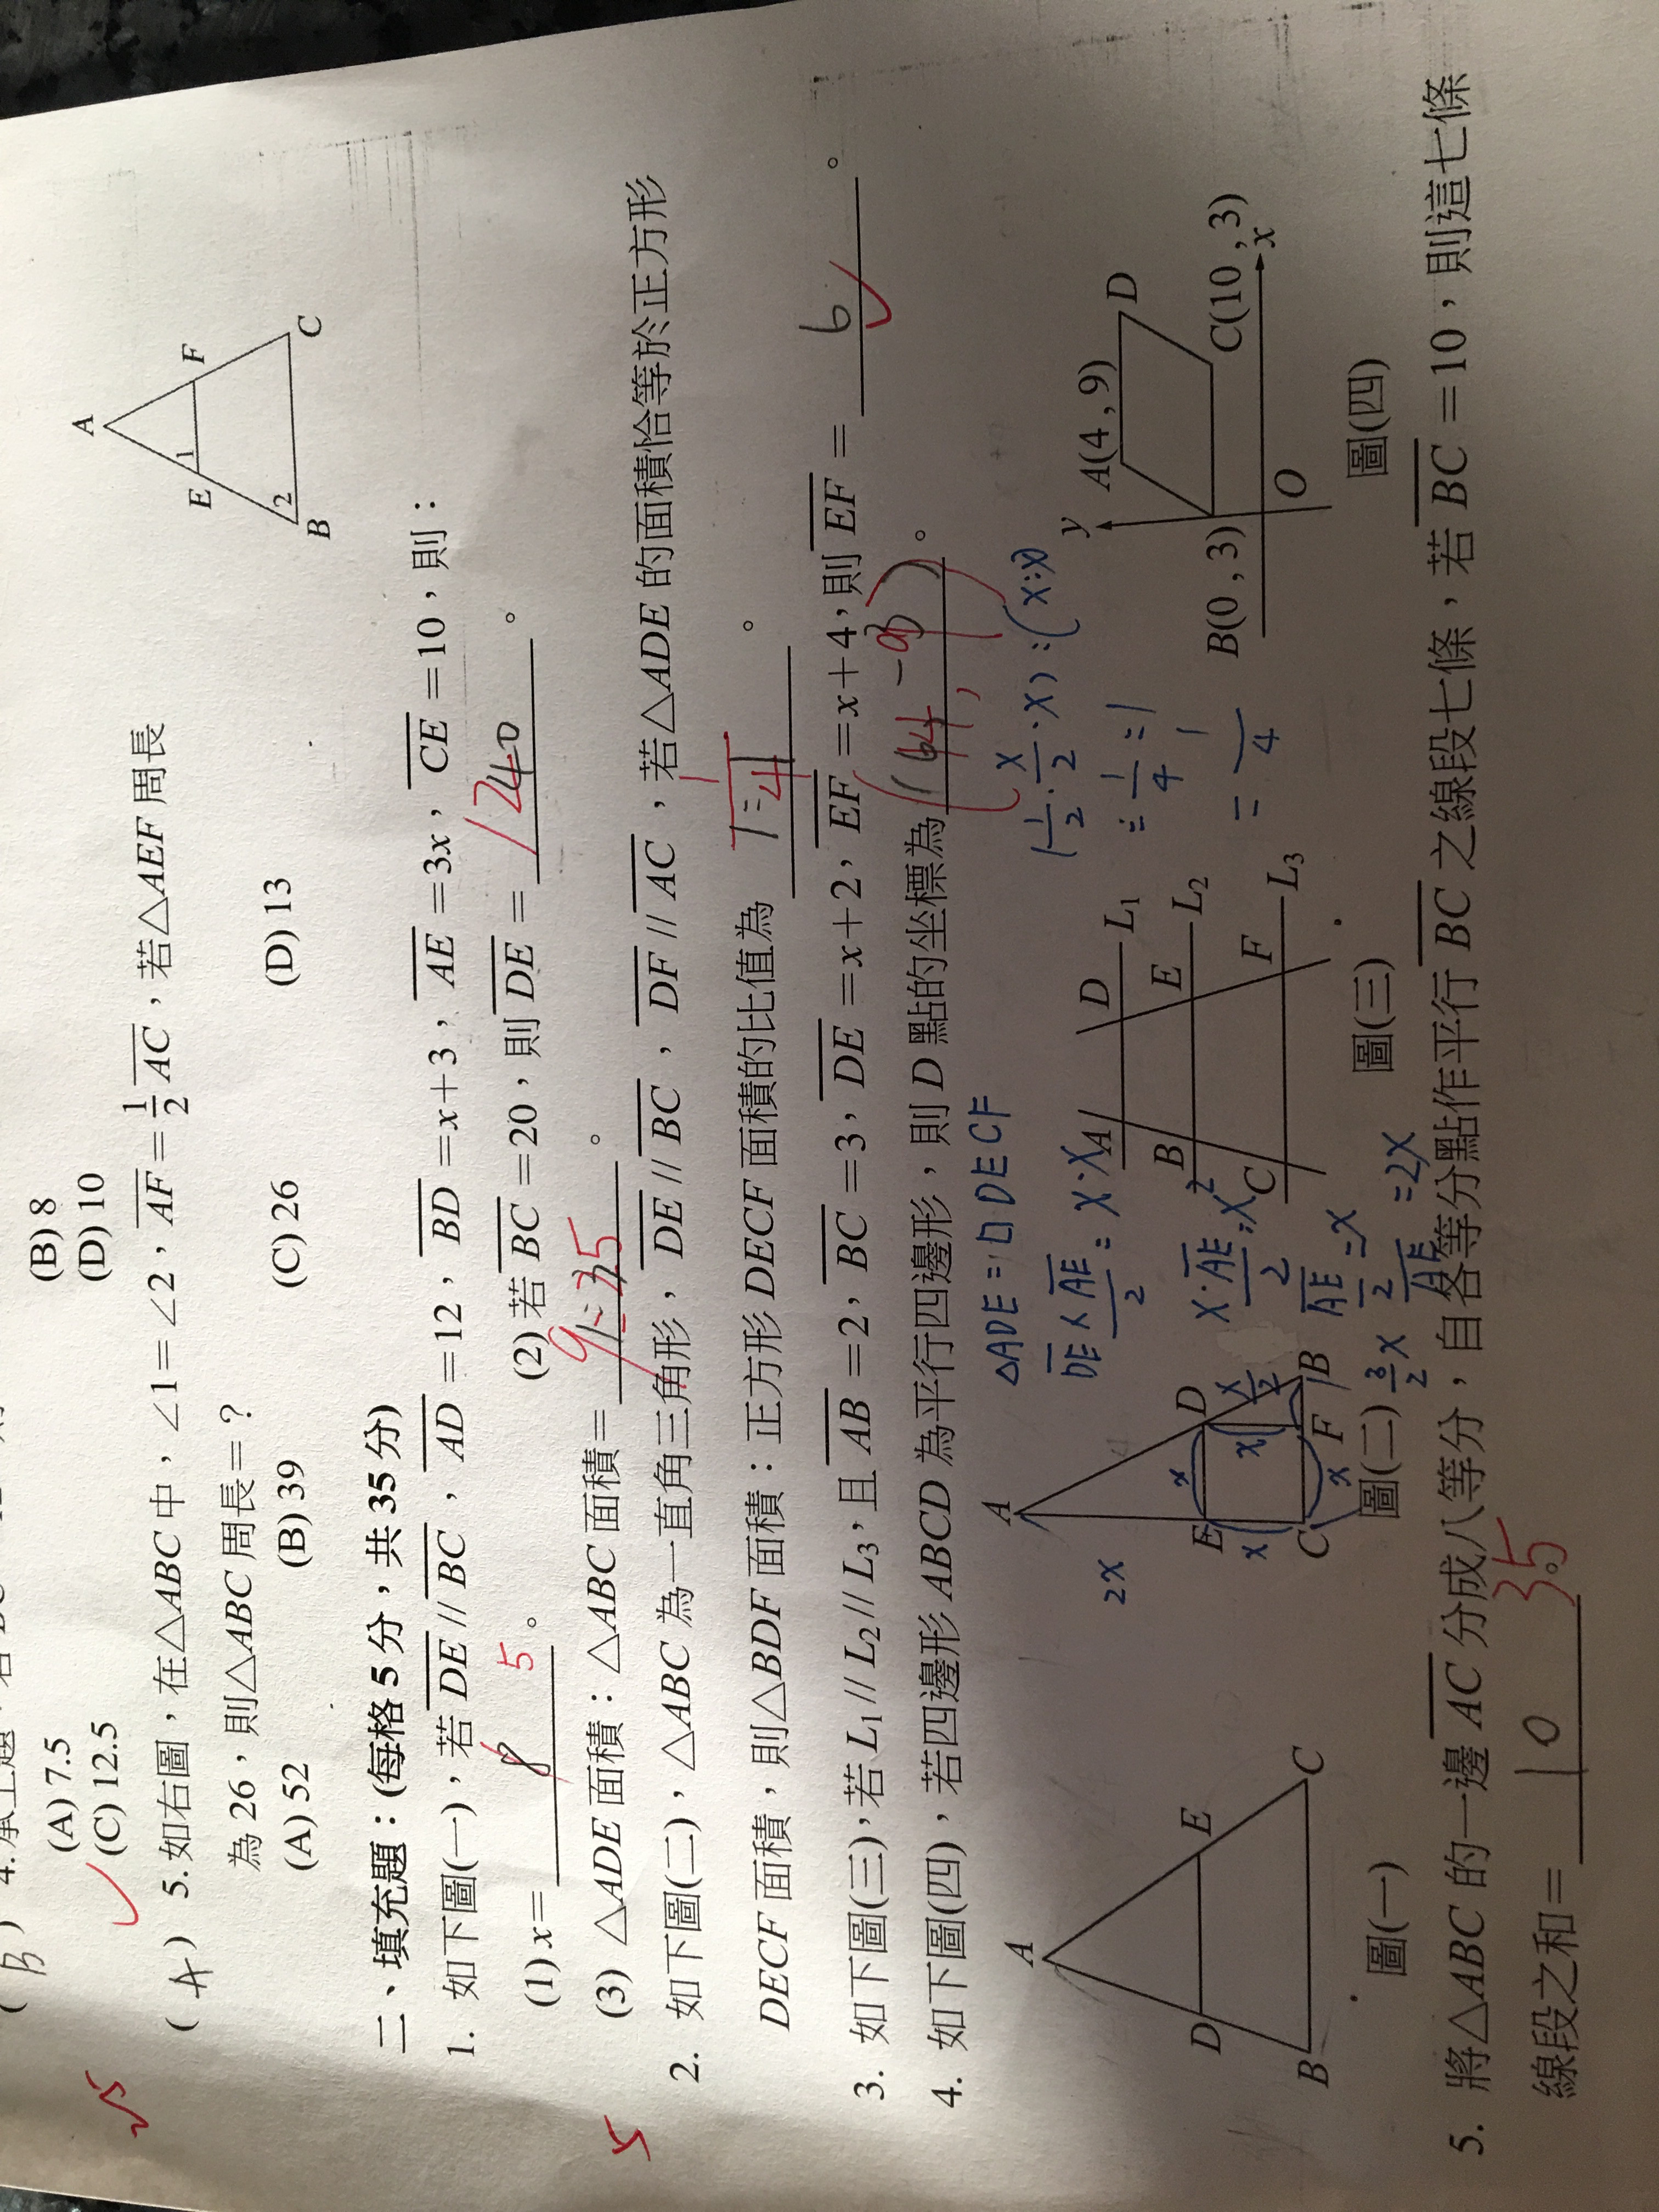 ( B ) 4.承上題,若
(A) 7.5 (B) 8
(C) 12.5 (D) 10
( A ) 5. 如右圖,在△ABC 中,∠1=∠2,AF=1/2 AC,若△AEF 周長
為 26,則△ABC 周長=?
(A) 52 (B) 39 (C) 26 (D) 13
A
E 1 F
B 2 C
二、填充題:(每格 5 分,共 35 分)
1. 如下圖(一),若 DE // BC,AD=12,BD=x+3,AE=3x,CE=10,則:
(1) x= 8 5 。 (2) 若 BC=20,則 DE= 12 。
(3) △ADE 面積:△ABC 面積= 9:25 。
2. 如下圖(二),△ABC 為一直角三角形,DE // BC,DF // AC,若△ADE 的面積恰等於正方形
DECF 面積,則△BDF 面積:正方形 DECF 面積的比值為 1/4 。
3. 如下圖(三),若 L1 // L2 // L3,且 AB=2,BC=3,DE=x+2,EF=x+4,則 EF= 6 。
4. 如下圖(四),若四邊形 ABCD 為平行四邊形,則 D 點的坐標為 (14, 9) 。
△ADE=□DECF
DE×AE/2=x·x
x·AE/2=x²
AE/2=x
AE=2x
(1/2·x/2·x):(x·x)
=1/4:1
=1/4
A
D E
B C
圖(一)
A
2x
E x D
x x x/2
C x F B
3/2 x
圖(二)
A D L1
B E L2
C F L3
圖(三)
y A(4 , 9) D
B(0 , 3) C(10 , 3)
O x
圖(四)
5. 將△ABC 的一邊 AC 分成八等分,自各等分點作平行 BC 之線段七條,若 BC=10,則這七條
線段之和= 10 35